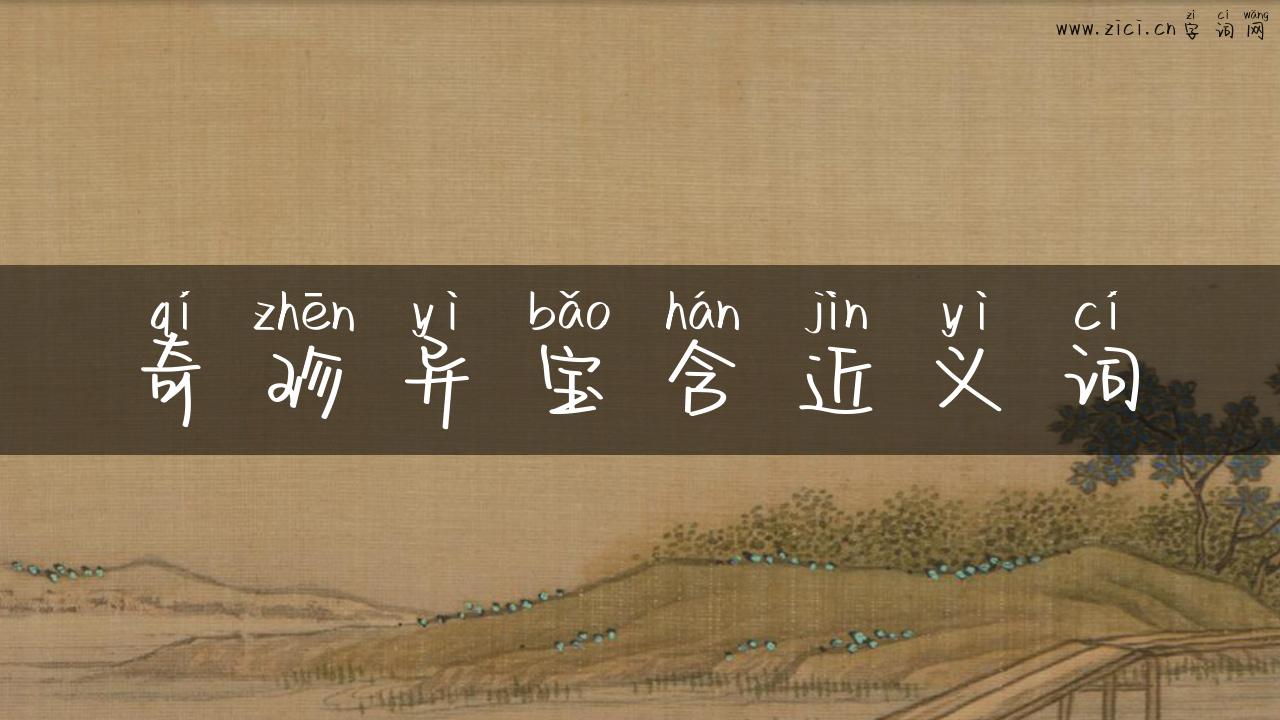 zì cí wǎng
www.zici.cn字词网
qí zhēn yì bǎo hán jìn yì cí
奇珍异宝含近义词